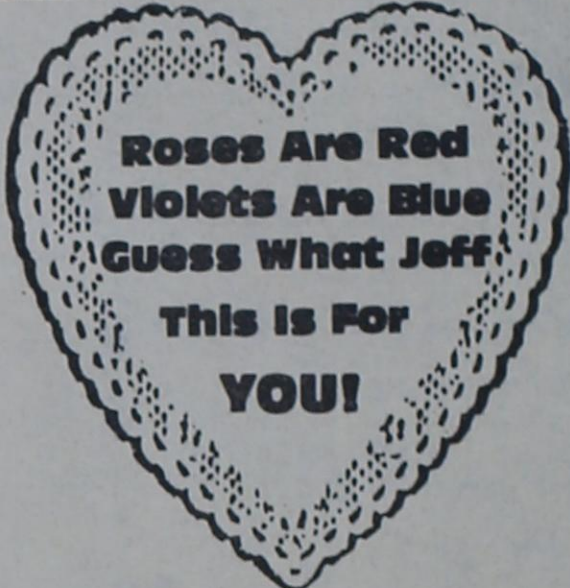 Roses Are Red
Violets Are Blue
Guess What Jeff
This Is For
YOU!